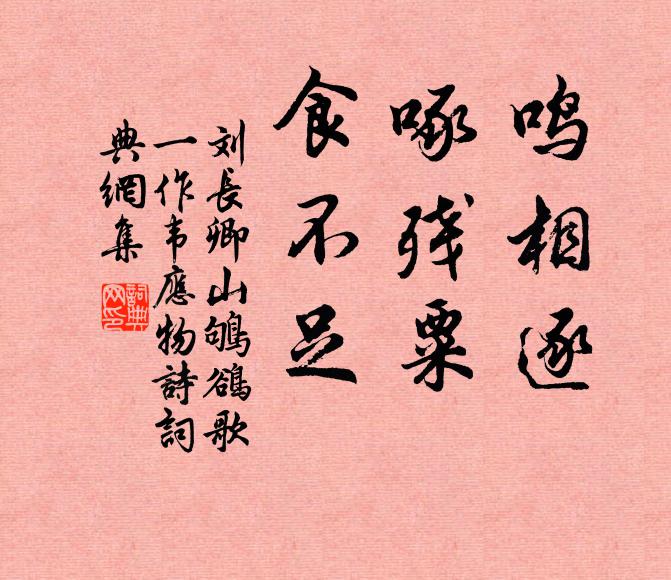 鸣相逐
啄残粟
食不足
刘長卿山鸲鹆歌
一作韦應物詩詞
典網集
詞典网印